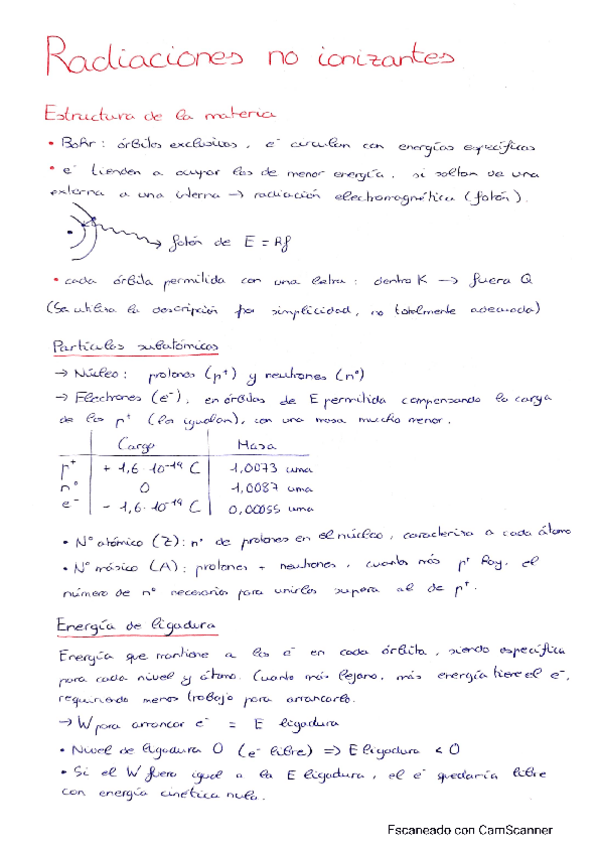 Radiaciones no ionizantes
Estructura de la materia
• Bohr: órbitas exclusivas, e⁻ circulan con energías específicas
• e⁻ tienden a ocupar las de menor energía, si saltan de una
externa a una interna → radiación electromagnética (fotón).
fotón de E = hf
• cada órbita permitida con una letra: dentro K → fuera Q
(Se utiliza la descripción por simplicidad, no totalmente adecuada)
Partículas subatómicas
→ Núcleo: protones (p⁺) y neutrones (n°)
→ Electrones (e⁻), en órbitas de E permitida compensando la carga
de los p⁺ (los igualan), con una masa mucho menor.
Carga Masa
p⁺ + 1,6 · 10⁻¹⁹ C 1,0073 uma
n° 0 1,0087 uma
e⁻ - 1,6 · 10⁻¹⁹ C 0,00055 uma
• N° atómico (Z): n° de protones en el núcleo, caracteriza a cada átomo
• N° másico (A): protones + neutrones, cuantos más p⁺ hay, el
número de n° necesarios para unirlos supera al de p⁺.
Energía de ligadura
Energía que mantiene a los e⁻ en cada órbita, siendo específica
para cada nivel y átomo. Cuanto más lejano, más energía tiene el e⁻,
requiriendo menos trabajo para arrancarlo.
→ W para arrancar e⁻ = E ligadura
• Nivel de ligadura 0 (e⁻ libre) => E ligadura < 0
• Si el W fuera igual a la E ligadura, el e⁻ quedaría libre
con energía cinética nula.
Escaneado con CamScanner